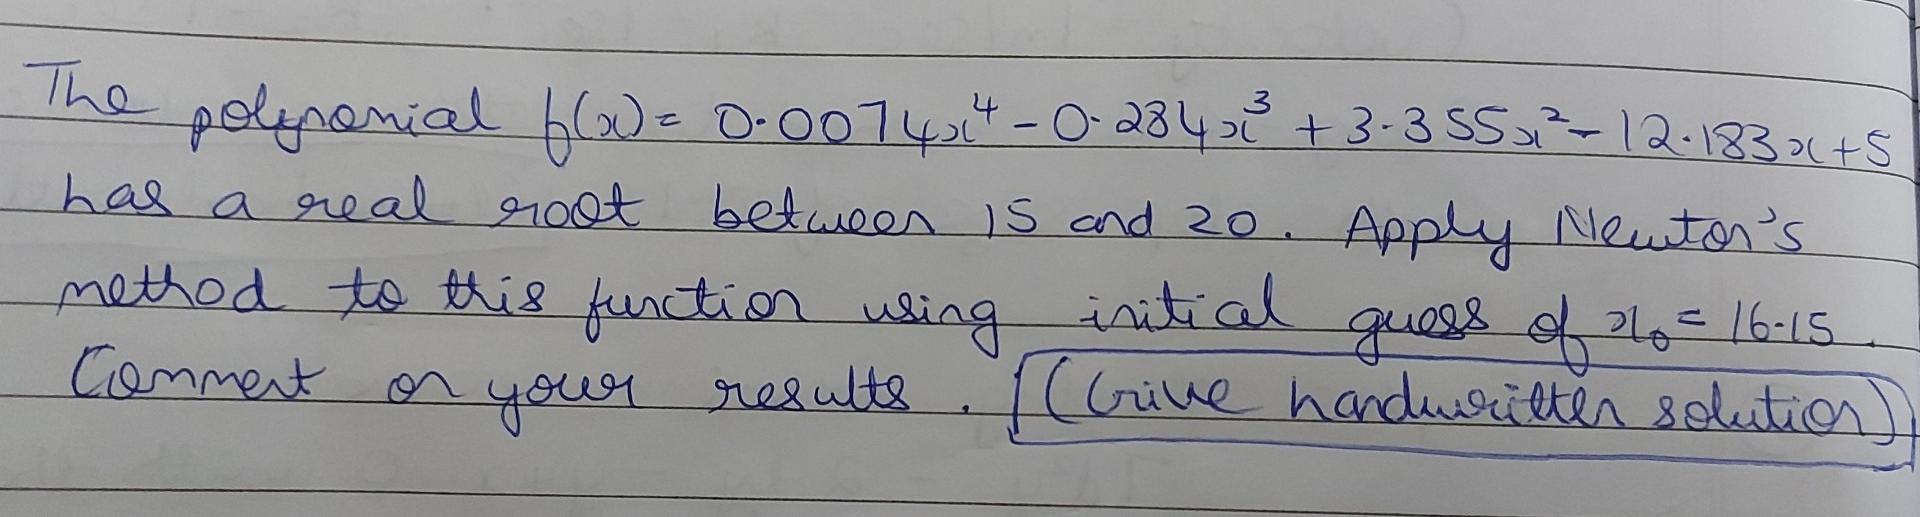 The polynomial f(x) = 0.0074x⁴ - 0.284x³ + 3.355x² - 12.183x + 5
has a real root between 15 and 20. Apply Newton's
method to this function using initial guess of x₀ = 16.15.
Comment on your results. (Give handwritten solution)